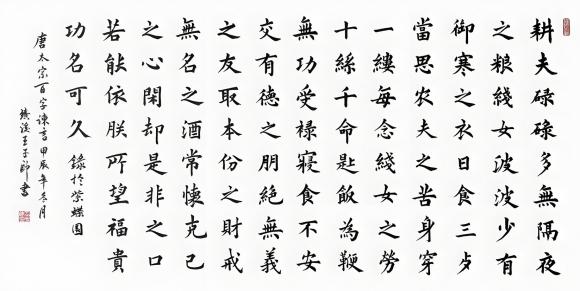 耕夫碌碌多無隔夜
之粮綫女波波少有
御寒之衣日食三歺
當思农夫之苦身穿
一縷每念綫女之勞
十綵千命匙飯為鞭
無功受禄寢食不安
交有德之朋絕無義
之友取本份之財戒
無名之酒常懷克己
之心閑却是非之口
若能依朕所望福貴
功名可久 錄於紫蝶園
唐太宗百字諫言甲辰年冬月
溪王子書